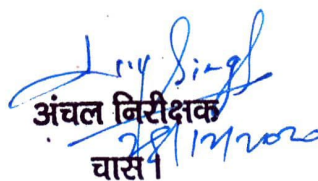 Singh
अंचल निरीक्षक
28/12/2020
चास।